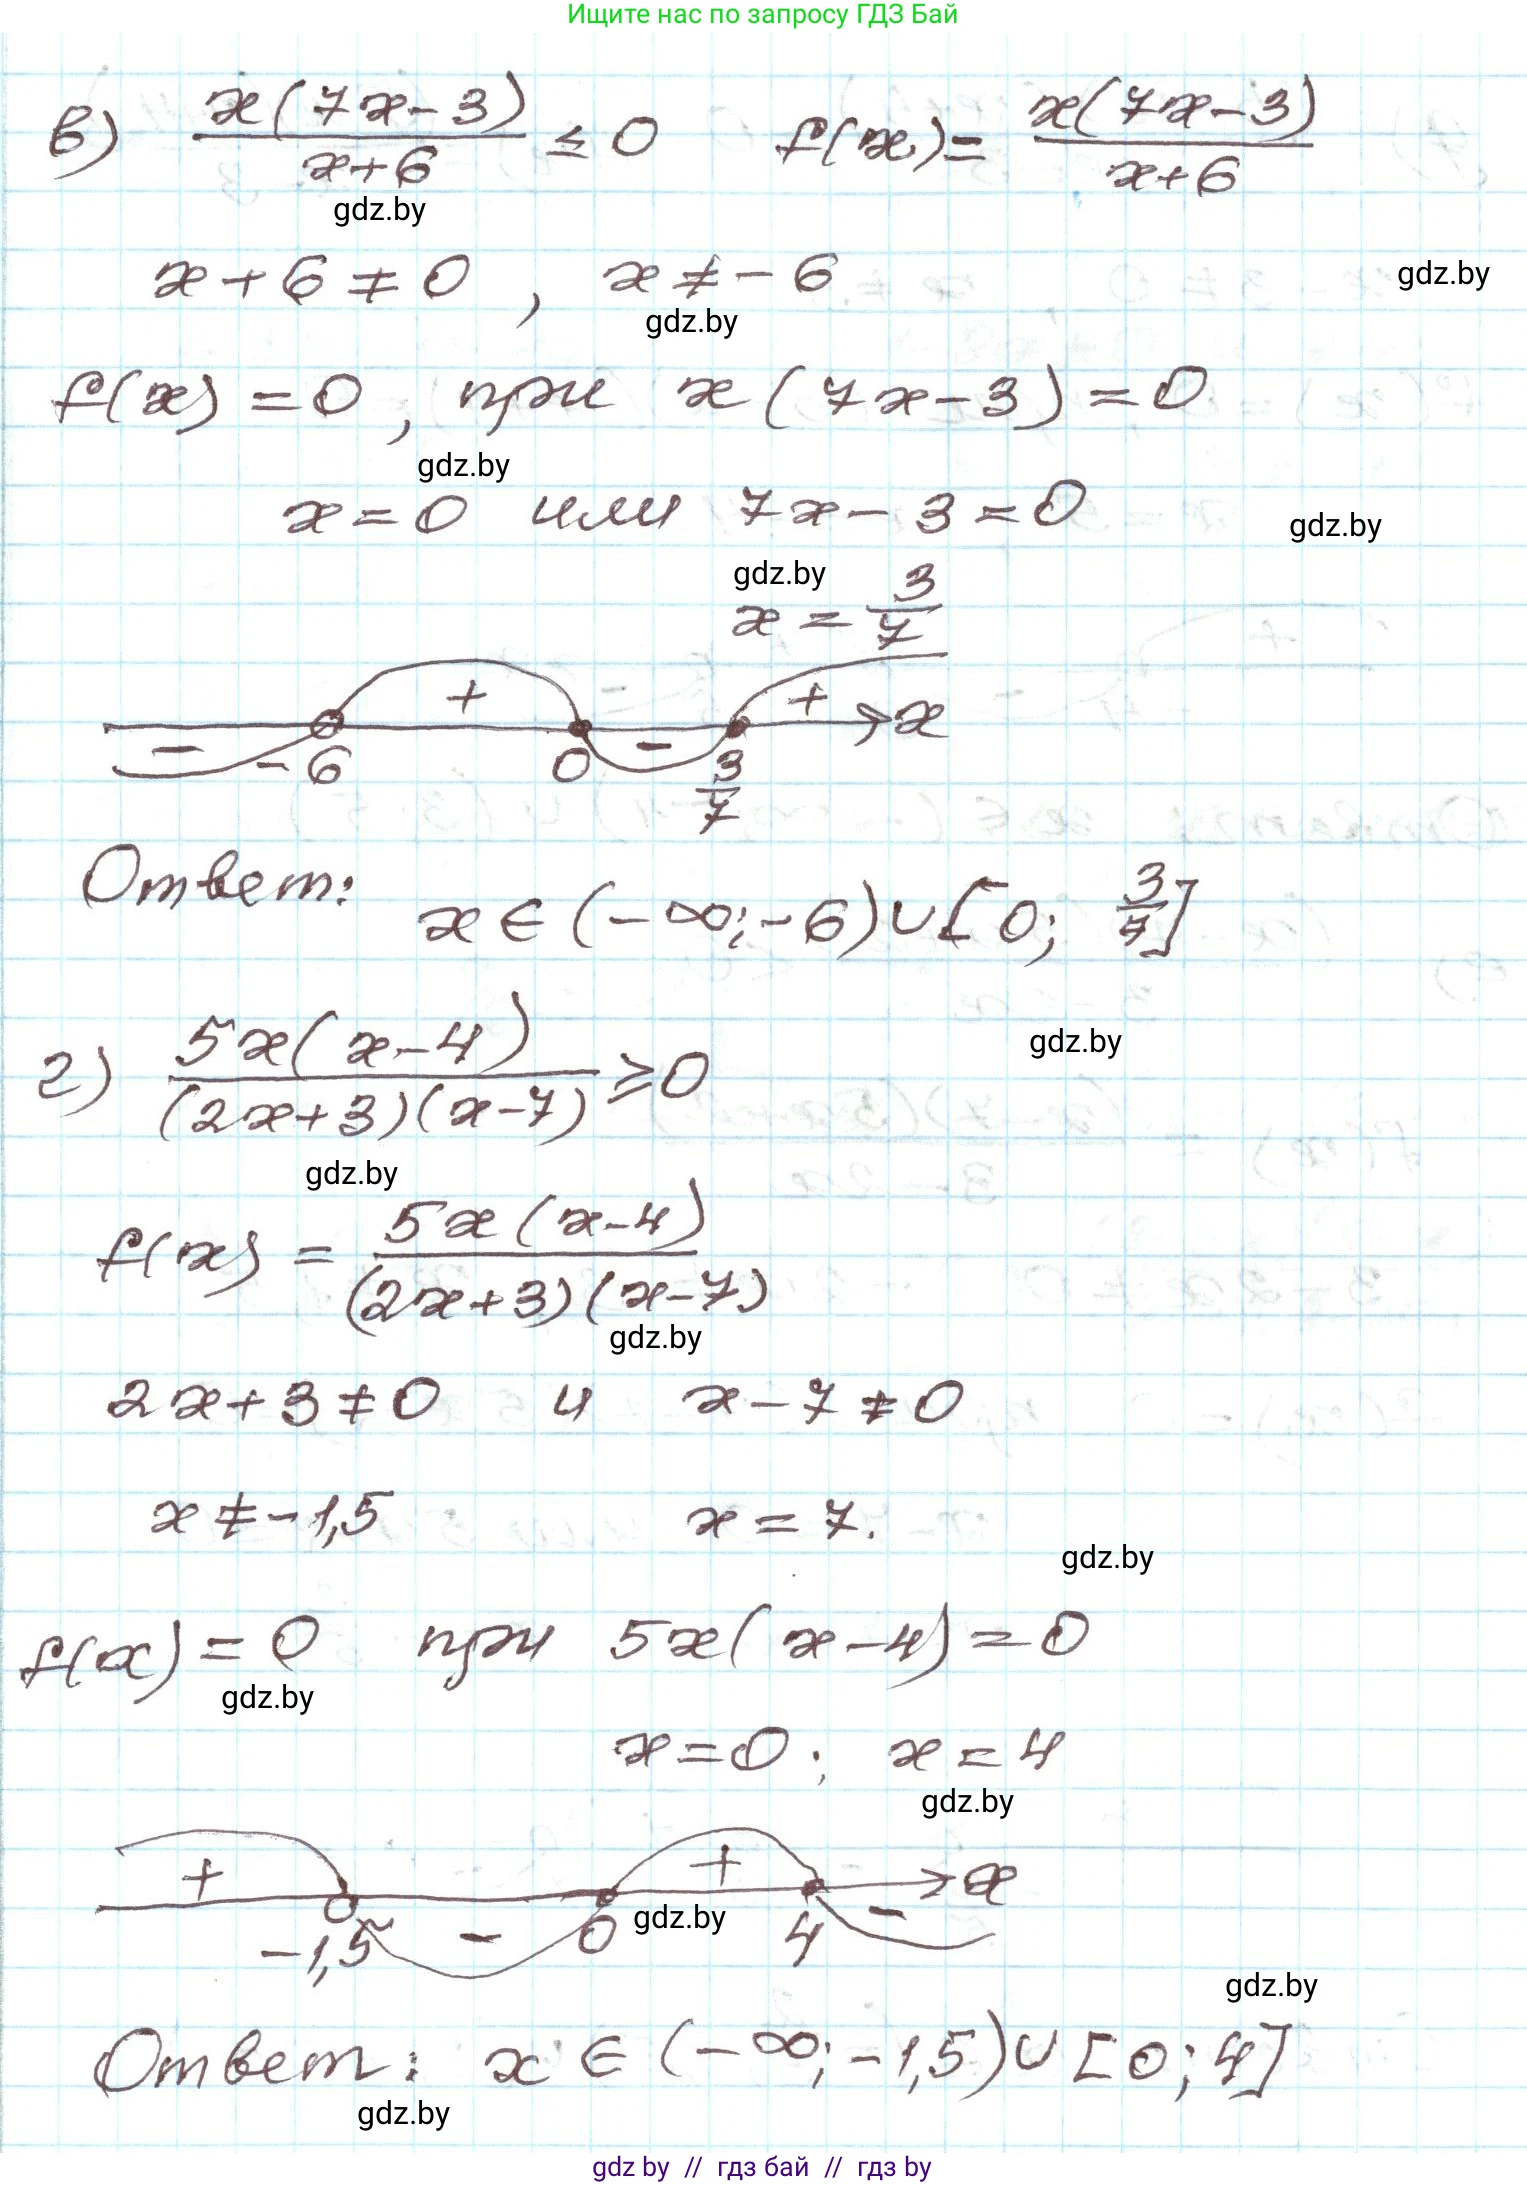 Ищите нас по запросу ГДЗ Бай
в) x(7x-3)/(x+6) ≤ 0    f(x) = x(7x-3)/(x+6)
gdz.by
x+6≠0, x≠-6
gdz.by
gdz.by
f(x)=0, при x(7x-3)=0
gdz.by
x=0 или 7x-3=0
gdz.by
gdz.by
x = 3/7
+ + x
- -6 0 - 3/7
Ответ: x∈(-∞;-6)∪[0; 3/7]
г) 5x(x-4)/((2x+3)(x-7)) ≥ 0
gdz.by
gdz.by
f(x) = 5x(x-4)/((2x+3)(x-7))
gdz.by
2x+3≠0 и x-7≠0
x≠-1,5    x=7.
gdz.by
f(x)=0 при 5x(x-4)=0
gdz.by
x=0; x=4
gdz.by
+ + x
-1,5 - 0 gdz.by 4 -
gdz.by
Ответ: x∈(-∞;-1,5)∪[0;4]
gdz.by
gdz by // гдз бай // гдз by